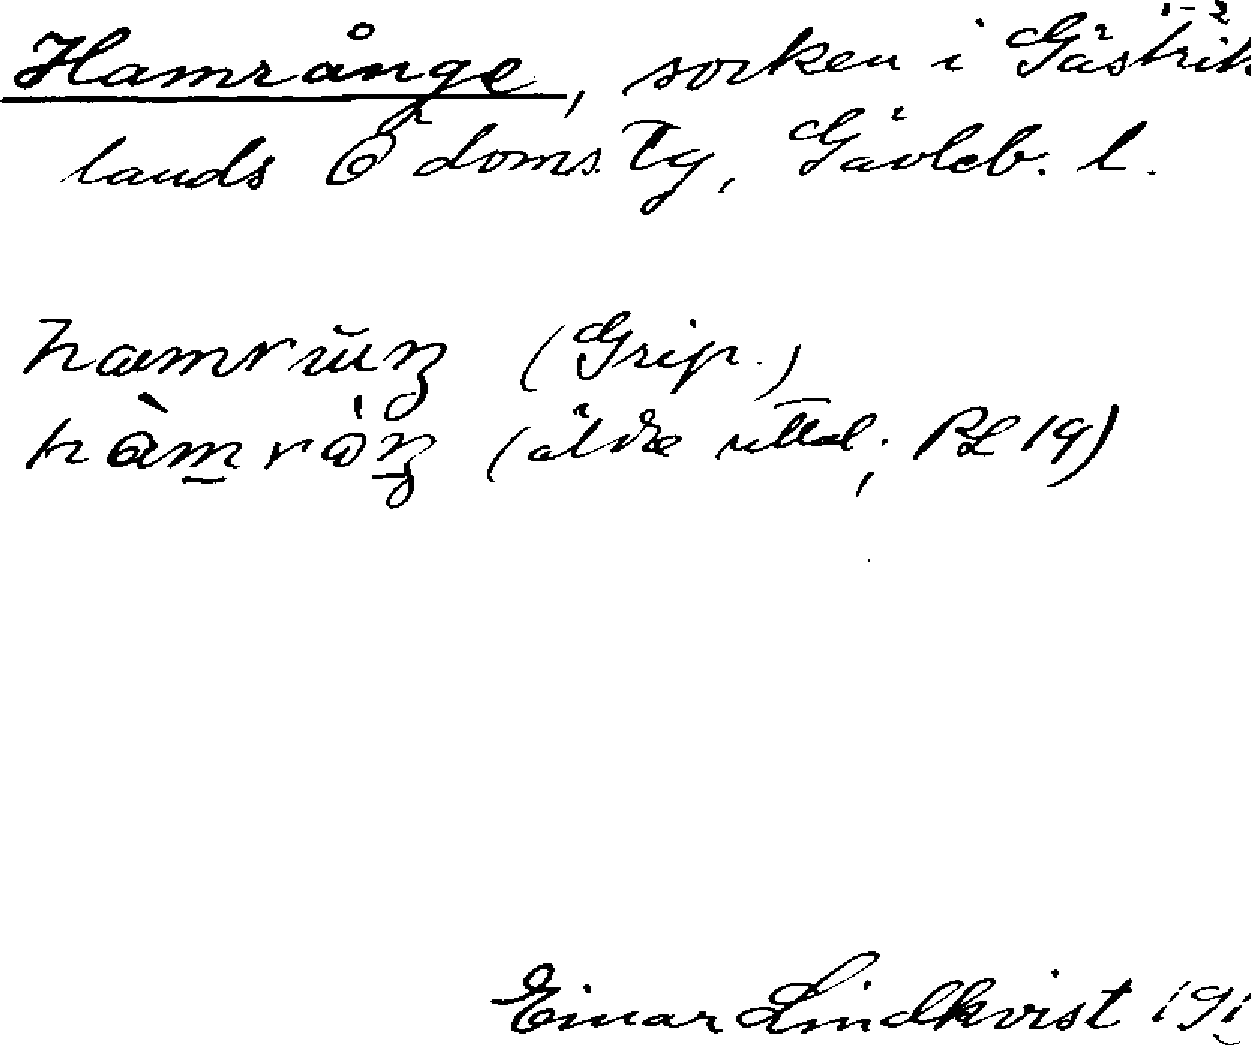 Hamrånge, socken i Gästrik
lands Ö doms. Tg, Gävleb. l.
hamrŭŋ (Grip.)
hàmròŋ (äldre uttal; BL 19)
Einar Lindkvist 191